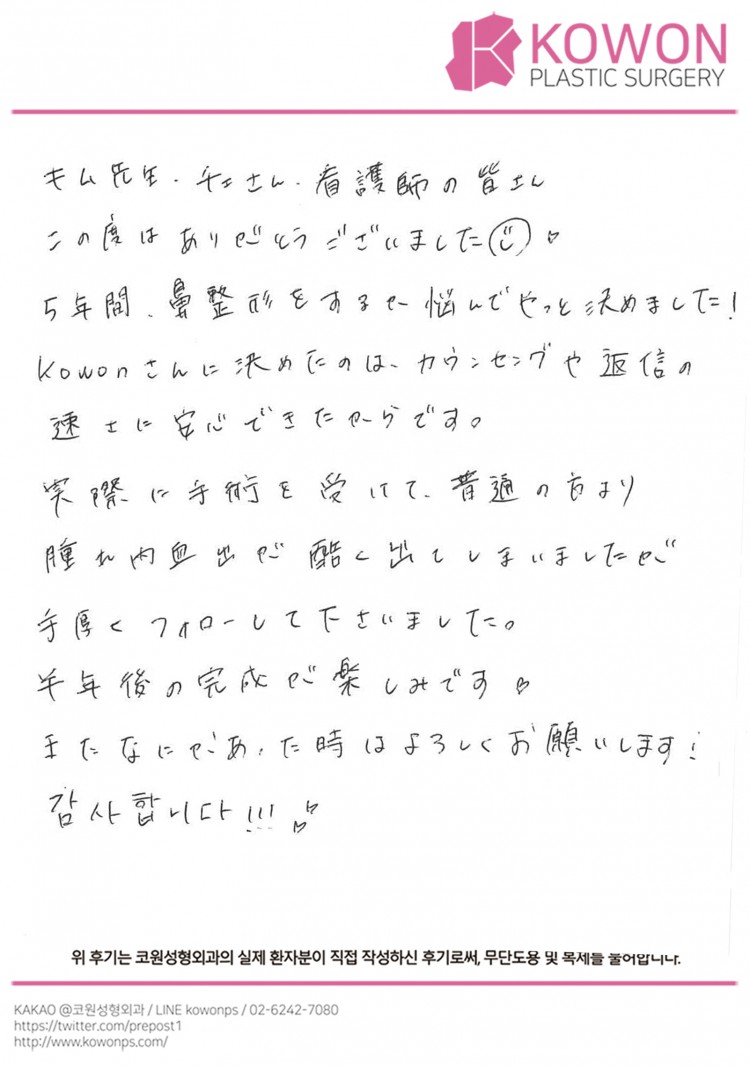 KOWON
PLASTIC SURGERY
キム先生、チェさん、看護師の皆さん
この度はありがとうございました
5年間、鼻整形をするか悩んでやっと決めました!
Kowonさんに決めたのは、カウンセングや返信の
速さに安心できたからです。
実際に手術を受けて、普通の方より
腫れ内血出が酷く出てしまいましたが
手厚くフォローして下さいました。
半年後の完成が楽しみです♡
またなにかあった時はよろしくお願いします!
감사합니다!!! ♡
위 후기는 코원성형외과의 실제 환자분이 직접 작성하신 후기로써, 무단도용 및 복제를 불허합니다.
KAKAO @코원성형외과 / LINE kowonps / 02-6242-7080
https://twitter.com/prepost1
http://www.kowonps.com/